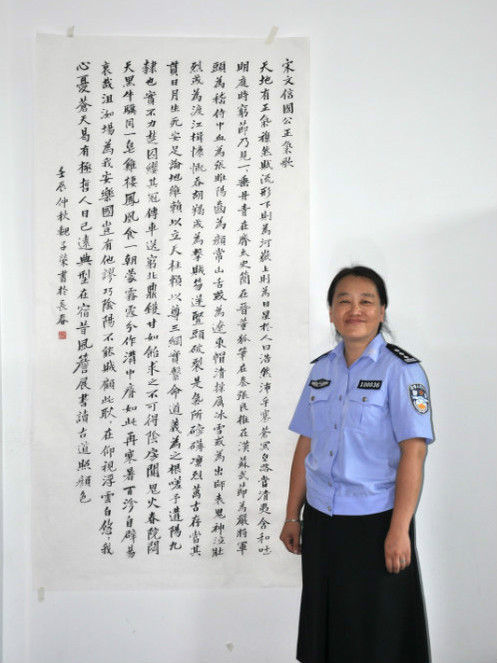 宋文信國公正氣歌
天地有正氣雜然賦流形下則為河嶽上則為日星於人曰浩然沛乎塞蒼冥皇路當清夷含和吐
明庭時窮節乃見一一垂丹青在齊太史簡在晉董狐筆在秦張良椎在漢蘇武節為嚴將軍
頭為嵇侍中血為張睢陽齒為顏常山舌或為遼東帽清操厲冰雪或為出師表鬼神泣壯
烈或為渡江楫慷慨吞胡羯或為擊賊笏逆豎頭破裂是氣所磅礴凜烈萬古存當其
貫日月生死安足論地維賴以立天柱賴以尊三綱實繫命道義為之根嗟予遘陽九
隸也實不力楚囚纓其冠傳車送窮北鼎鑊甘如飴求之不可得陰房闃鬼火春院閟
天黑牛驥同一皂雞棲鳳凰食一朝蒙霧露分作溝中瘠如此再寒暑百沴自辟易
哀哉沮洳場為我安樂國豈有他謬巧陰陽不能賊顧此耿耿在仰視浮雲白悠悠我
心憂蒼天曷有極哲人日已遠典型在宿昔風簷展書讀古道照顏色
壬辰仲秋魏子榮書於長春